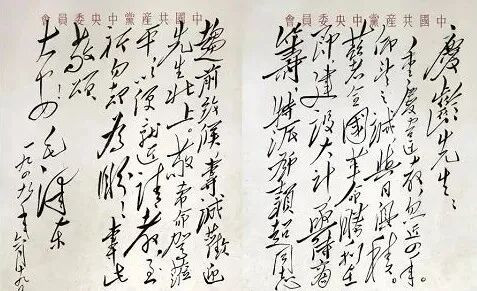 中國共產黨中央委員會
慶齡先生：
重慶違教，忽近四年。
仰望之誠，與日俱積。
茲者全國革命勝利在
即，建設大計，亟待商
籌，特派鄧穎超同志
中國共產黨中央委員會
趨前致候，專誠歡迎
先生北上。敬希命駕蒞
平，以便就近請教，至
祈勿却為盼！專此
敬頌
大安！ 毛澤東
一九四九年六月十九日